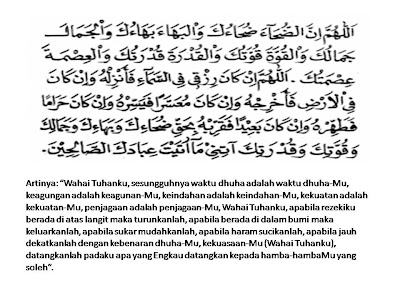 اَللّٰهُمَّ اِنَّ الضُّحَآءَ ضُحَاءُكَ وَالْبَهَاءَ بَهَاءُكَ وَالْجَمَالَ
جَمَالُكَ وَالْقُوَّةَ قُوَّتُكَ وَالْقُدْرَةَ قُدْرَتُكَ وَالْعِصْمَةَ
عِصْمَتُكَ . اَللّٰهُمَّ اِنْ كَانَ رِزْقِى فِى السَّمَآءِ فَأَنْزِلْهُ وَاِنْ كَانَ
فِى اْلاَرْضِ فَأَخْرِجْهُ وَاِنْ كَانَ مُعَسَّرًا فَيَسِّرْهُ وَاِنْ كَانَ حَرَامًا
فَطَهِّرْهُ وَاِنْ كَانَ بَعِيْدًا فَقَرِّبْهُ بِحَقِّ ضُحَاءِكَ وَبَهَاءِكَ وَجَمَالِكَ
وَقُوَّتِكَ وَقُدْرَتِكَ آتِنِيْ مَآ اَتَيْتَ عِبَادَكَ الصَّالِحِيْنَ.
Artinya: “Wahai Tuhanku, sesungguhnya waktu dhuha adalah waktu dhuha-Mu,
keagungan adalah keagunan-Mu, keindahan adalah keindahan-Mu, kekuatan adalah
kekuatan-Mu, penjagaan adalah penjagaan-Mu, Wahai Tuhanku, apabila rezekiku
berada di atas langit maka turunkanlah, apabila berada di dalam bumi maka
keluarkanlah, apabila sukar mudahkanlah, apabila haram sucikanlah, apabila jauh
dekatkanlah dengan kebenaran dhuha-Mu, kekuasaan-Mu (Wahai Tuhanku),
datangkanlah padaku apa yang Engkau datangkan kepada hamba-hambaMu yang
soleh”.